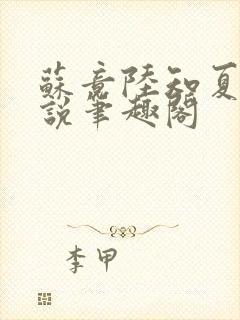 蘇意陸知夏
說筆趣閣
李甲